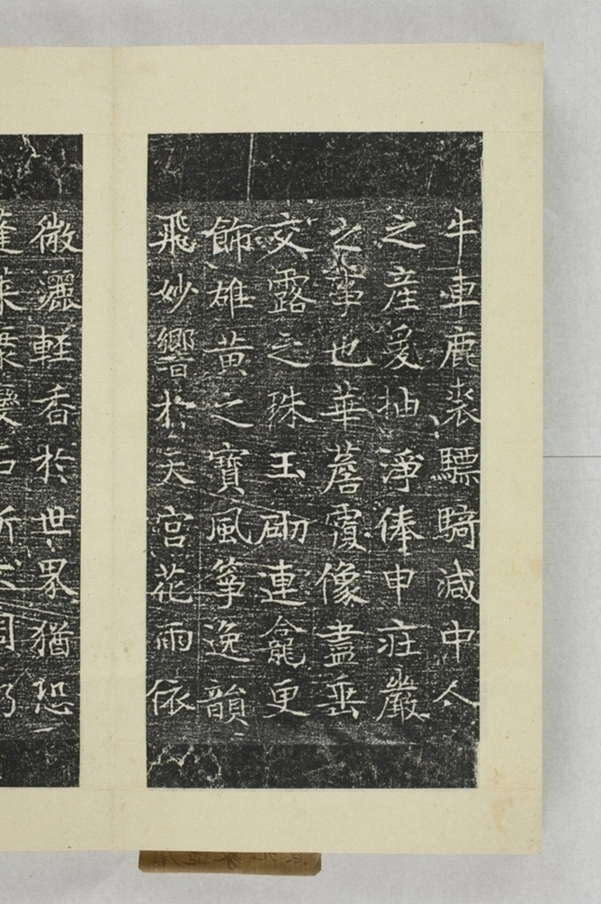 牛車鹿裘驃騎減中人
之産爰抽淨俸申庒嚴
之事也華簷覆像盡垂
交露之珠玉砌連龕更
飾雄黄之寶風箏逸韻
飛妙響於天宮花雨依
微灑輕香於世界猶恐
蓬莱桑變石